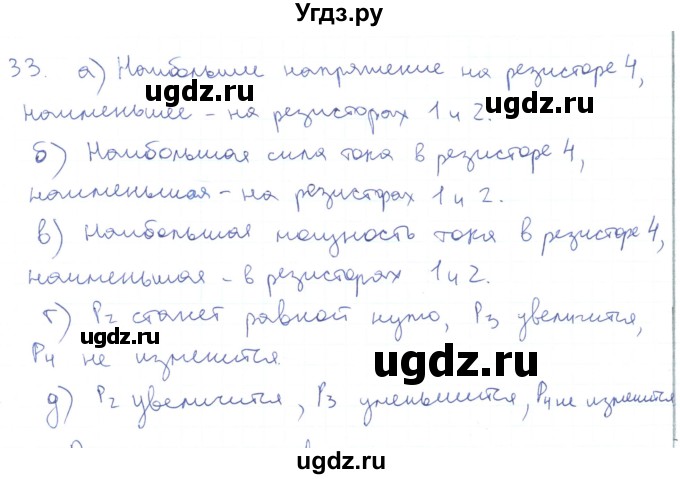 Угдз.ру
33. а) Наибольшее напряжение на резисторе 4,
ugdz.ru ugdz.ru
наименьшее - на резисторах 1 и 2.
б) Наибольшая сила тока в резисторе 4,
ugdz.ru
наименьшая - на резисторах 1 и 2.
в) Наибольшая мощность тока в резисторе 4,
ugdz.ru
наименьшая - в резисторах 1 и 2.
г) P2 станет равной нулю, P3 увеличится,
ugdz.ru ugdz.ru
P4 не изменится.
д) P2 увеличится, P3 уменьшится, P4 не изменится
ugdz.ru